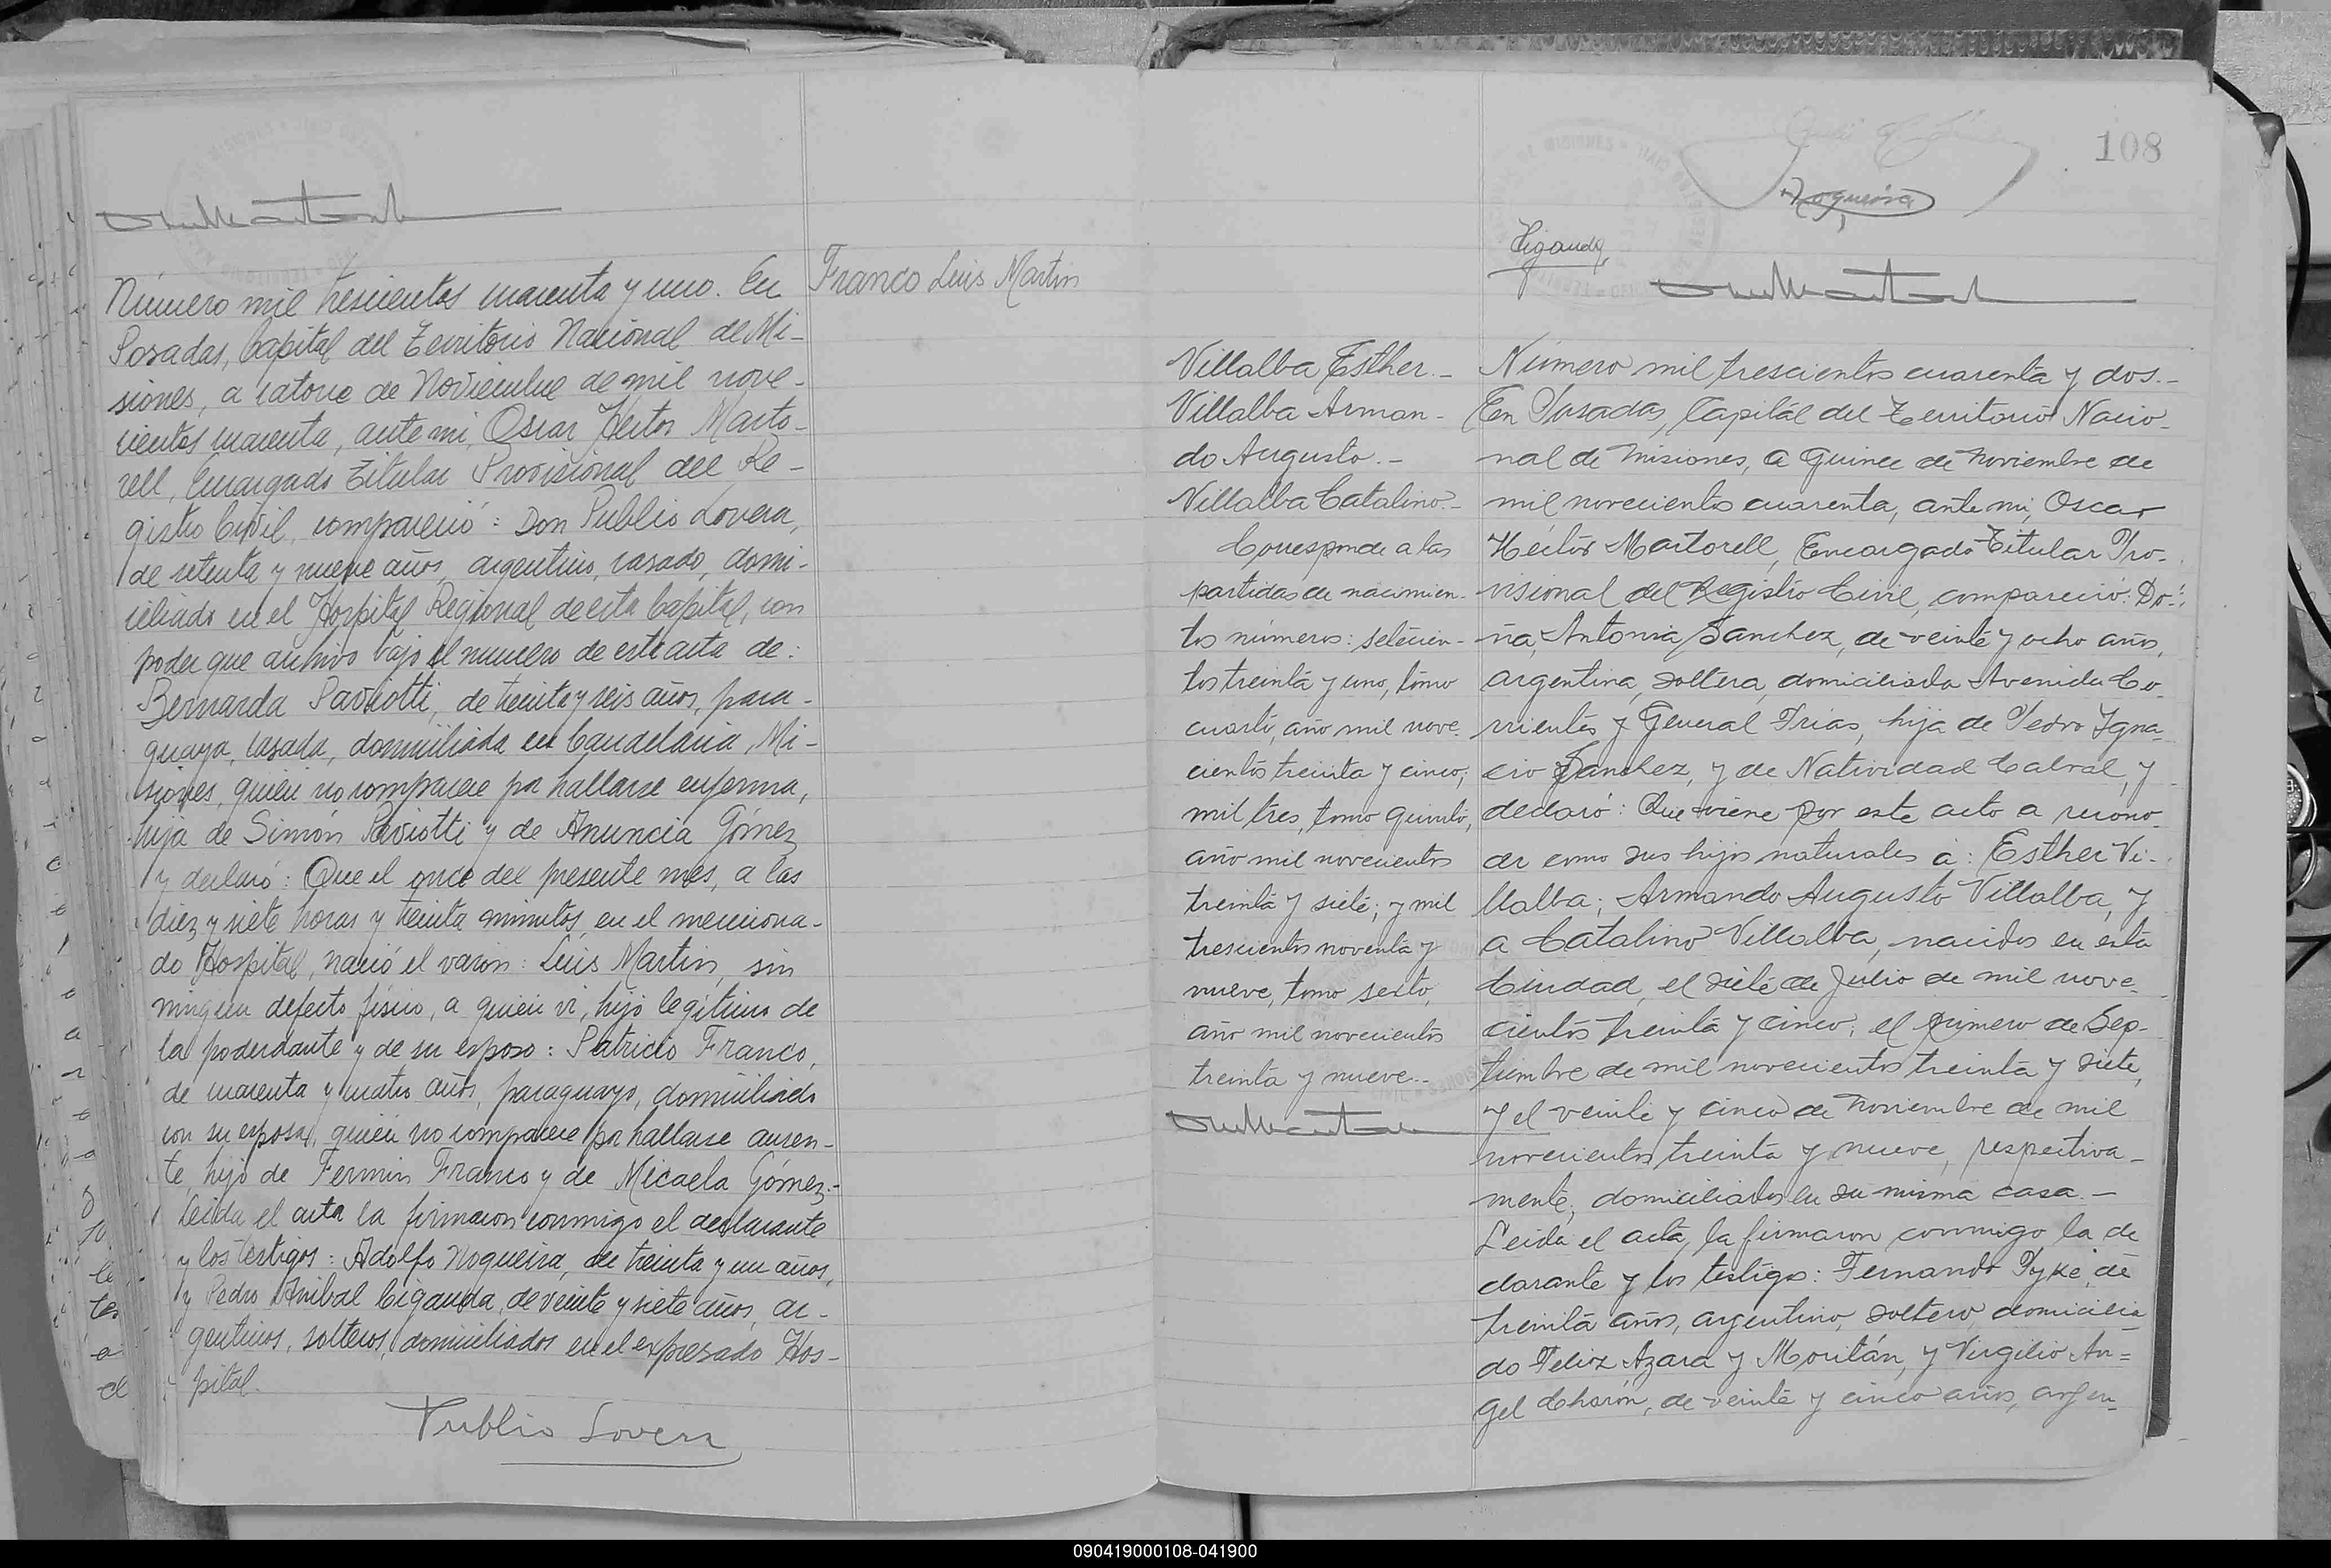 Número mil trescientos cuarenta y uno. En
Posadas, Capital del Territorio Nacional de Mi-
siones, a catorce de Noviembre de mil nove-
cientos cuarenta, ante mi, Oscar Héctor Marto-
rell, Encargado Titular Provisional del Re-
gistro Civil, compareció: Don Publio Lovera,
de setenta y nueve años, argentino, casado, domi-
ciliado en el Hospital Regional de esta Capital, con
poder que archivo bajo el numero de este acta de:
Bernarda Paviotti, de treinta y seis años, para-
guaya, casada, domiciliada en Candelaria, Mi-
siones, quien no comparece por hallarse enferma,
hija de Simón Paviotti y de Anuncia Gómez
y declaró: Que el once del presente mes, a las
diez y siete horas y treinta minutos, en el menciona-
do Hospital, nació el varon: Luis Martin, sin
ningun defecto fisico, a quien vi, hijo legitimo de
la poderdante y de su esposo: Patricio Franco,
de cuarenta y cuatro años, paraguayo, domiciliado
con su esposa, quien no comparece por hallarse ausen-
te, hijo de Fermin Franco y de Micaela Gómez.-
Leida el acta la firmaron conmigo el declarante
y los testigos: Adolfo Nogueira, de treinta y un años,
y Pedro Anibal Ciganda, de veinte y siete años, ar-
gentinos, solteros, domiciliados en el expresado Hos-
pital.
Publio Lovera
Franco Luis Martin
108
Nogueira
Ciganda
Villalba Esther.-
Villalba Arman-
do Augusto.-
Villalba Catalino.-
Corresponde a las
partidas de nacimien-
tos números: setecien-
tos treinta y uno, tomo
cuarto, año mil nove-
cientos treinta y cinco;
mil tres, tomo quinto,
año mil novecientos
treinta y siete; y mil
trescientos noventa y
nueve, tomo sexto,
año mil novecientos
treinta y nueve.-
Número mil trescientos cuarenta y dos.-
En Posadas, Capital del Territorio Nacio-
nal de Misiones, a quince de Noviembre de
mil novecientos cuarenta, ante mi, Oscar
Héctor Martorell, Encargado Titular Pro-
visional del Registro Civil, compareció: Do-
ña Antonia Sanchez, de veinte y ocho años,
argentina, soltera, domiciliada Avenida Co-
rrientes y General Frias, hija de Pedro Igna-
cio Sanchez, y de Natividad Cabral, y
declaró: Que viene por este acto a recono-
cer como sus hijos naturales a: Esther Vi-
llalba; Armando Augusto Villalba, y
a Catalino Villalba, nacidos en esta
Ciudad, el siete de Julio de mil nove-
cientos treinta y cinco; el primero de Sep-
tiembre de mil novecientos treinta y siete,
y el veinte y cinco de Noviembre de mil
novecientos treinta y nueve, respectiva-
mente; domiciliados en su misma casa.-
Leida el acta, la firmaron conmigo la de
clarante y los testigos: Fernando Pyke, de
treinta años, argentino, soltero, domicilia-
do Felix Azara y Moritán, y Virgilio An=
gel Charón, de veinte y cinco años, argen-
090419000108-041900